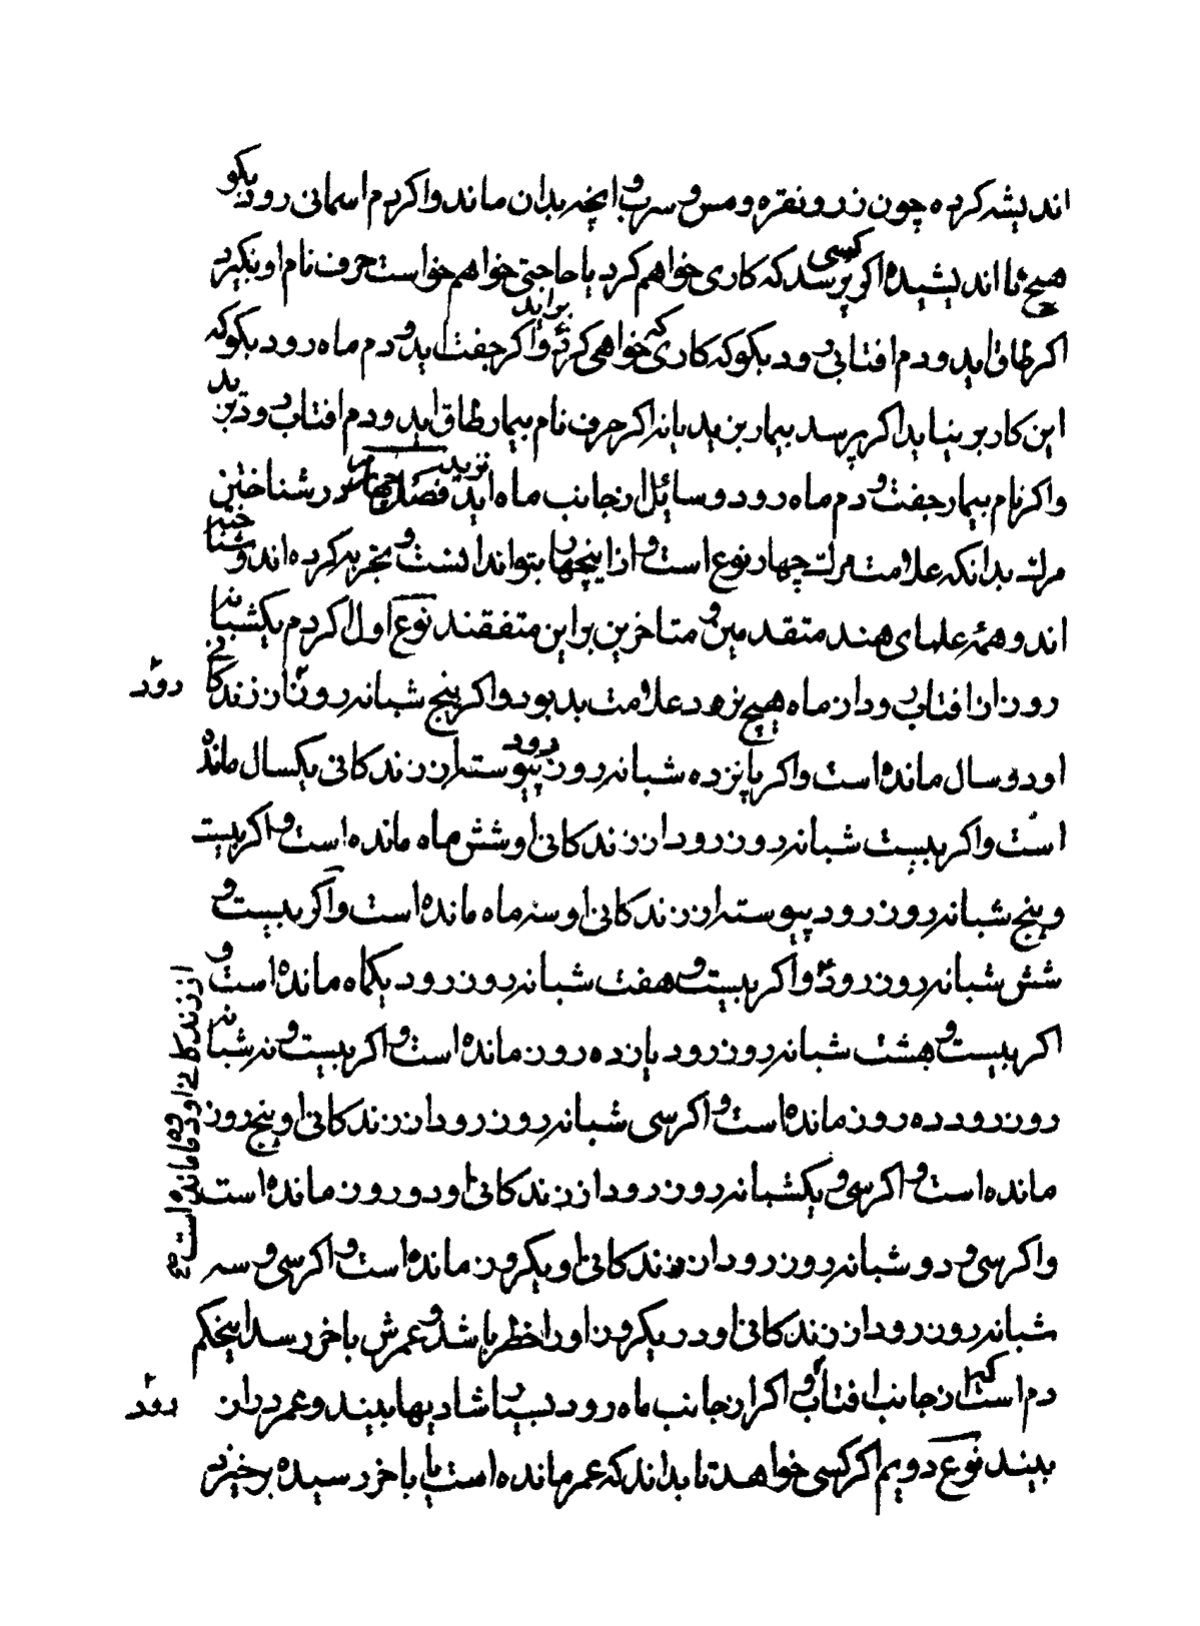 اندیشه کرده چون زر و نقره و مس و سرب و انچه بدان ماند و اکر دم اسمانی رود بکو
هیچ نا اندیشیده اکر کسی پرسد که کاری خواهم کرد یا حاجتی خواهم خواست حرف نام او بکیرد
اکر طاق اید و دم افتابی رود بکو که کاری که خواهی کرد براید و اکر جفت اید و دم ماه رود بکو که
این کار بر نیاید اکر پرسد بیمار بزید یا نه اکر حرف نام بیمار طاق اید و دم افتاب رود بزید
و اکر نام بیمار جفت و دم ماه رود و سائل از جانب ماه اید نزید فصل چهارم در شناختن
مرک بدانکه علامت مرک چهار نوع است و از اینچهار بتواند دانست و تجربه کرده اند و شناخته
اند و همه علمای هند متقدمین و متاخرین بر این متفقند نوع اول اکر دم یکشبانه
روز از افتاب رود از ماه هیچ نرود علامت بد بود و اکر پنج شبانه روز از زندکانی
رود
او دو سال مانده است و اکر پانزده شبانه روز رود پیوسته از زندکانی یکسال مانده
است و اکر بیست شبانه روز رود از زندکانی او شش ماه مانده است و اکر بیست
و پنج شبانه روز رود پیوسته از زندکانی او سه ماه مانده است و اکر بیست و
شش شبانه روز رود دو و اکر بیست و هفت شبانه روز رود یکماه مانده است و
از زندکانی او دو ماه مانده است
اکر بیست و هشت شبانه روز رود پانزده روز مانده است و اکر بیست و نه شبانه
روز رود ده روز مانده است و اکر سی شبانه روز رود از زندکانی او پنج روز
مانده است و اکر سی و یکشبانه روز رود از زندکانی او دو روز مانده است
و اکر سی و دو شبانه روز رود از زندکانی او یکروز مانده است و اکر سی و سه
شبانه روز رود از زندکانی او در یکروز او را خطر باشد و عمرش باخر رسد اینحکم
دم است که از جانب افتاب و اکر از جانب ماه رود بسیار شادیها بیند و عمر دراز
رود
بیند نوع دویم اکر کسی خواهد تا بداند که عمر مانده است یا باخر رسیده برخیزد